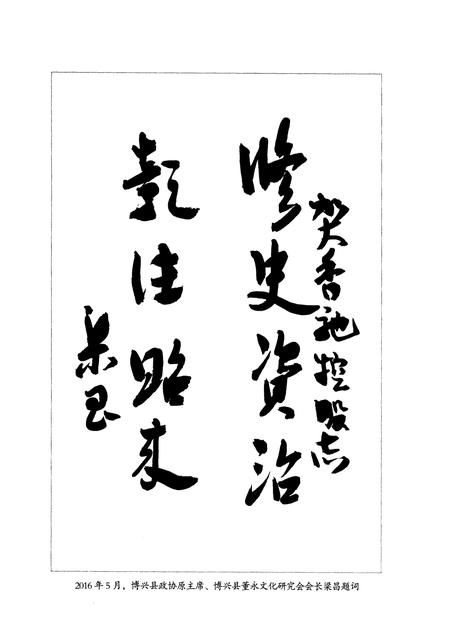 贺香驰控股志
修史资治
彰往昭来
梁昌
2016年5月，博兴县政协原主席、博兴县董永文化研究会会长梁昌题词